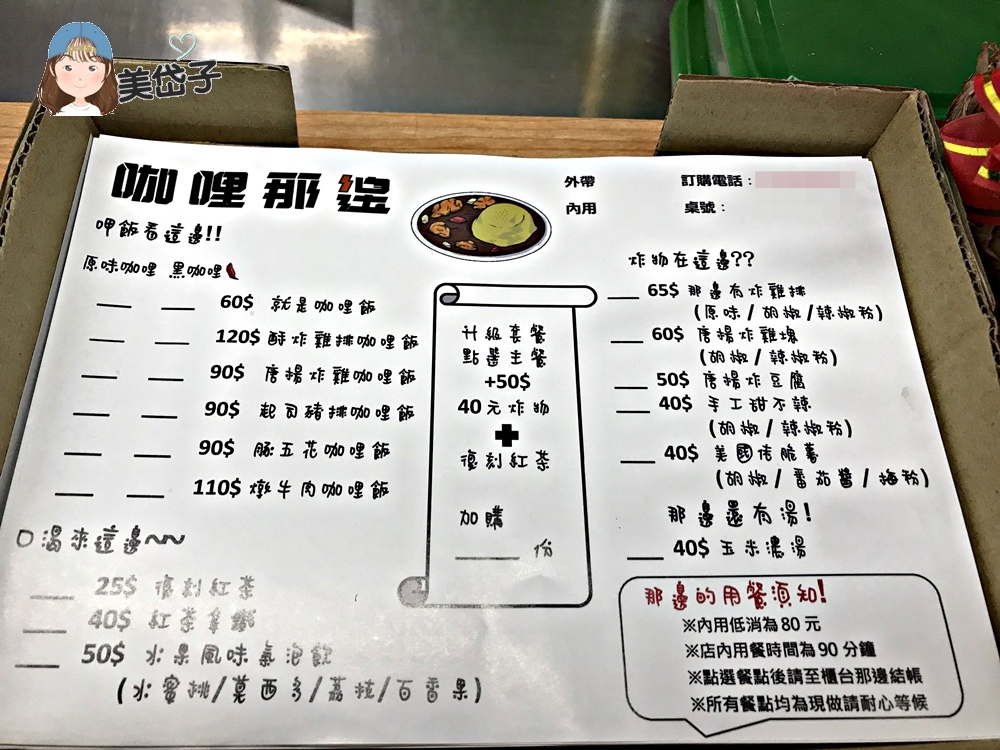 美岱子
咖哩那邊
外帶
訂購電話：
內用
桌號：
呷飯看這邊!!
原味咖哩 黑咖哩
60$ 就是咖哩飯
120$ 酥炸雞排咖哩飯
90$ 唐揚炸雞咖哩飯
90$ 起司豬排咖哩飯
90$ 豚五花咖哩飯
110$ 燉牛肉咖哩飯
口渴來這邊~~
25$ 復刻紅茶
40$ 紅茶拿鐵
50$ 水果風味氣泡飲
(水蜜桃/莫西多/荔枝/百香果)
升級套餐
點選主餐
+50$
40元炸物
+
復刻紅茶
加購
份
炸物在這邊??
65$ 那邊有炸雞排
(原味/胡椒/辣椒粉)
60$ 唐揚炸雞塊
(胡椒/辣椒粉)
50$ 唐揚炸豆腐
40$ 手工甜不辣
(胡椒/辣椒粉)
40$ 美國佬脆薯
(胡椒/番茄醬/梅粉)
那邊還有湯!
40$ 玉米濃湯
那邊的用餐須知!
※內用低消為80元
※店內用餐時間為90分鐘
※點選餐點後請至櫃台那邊結帳
※所有餐點均為現做請耐心等候